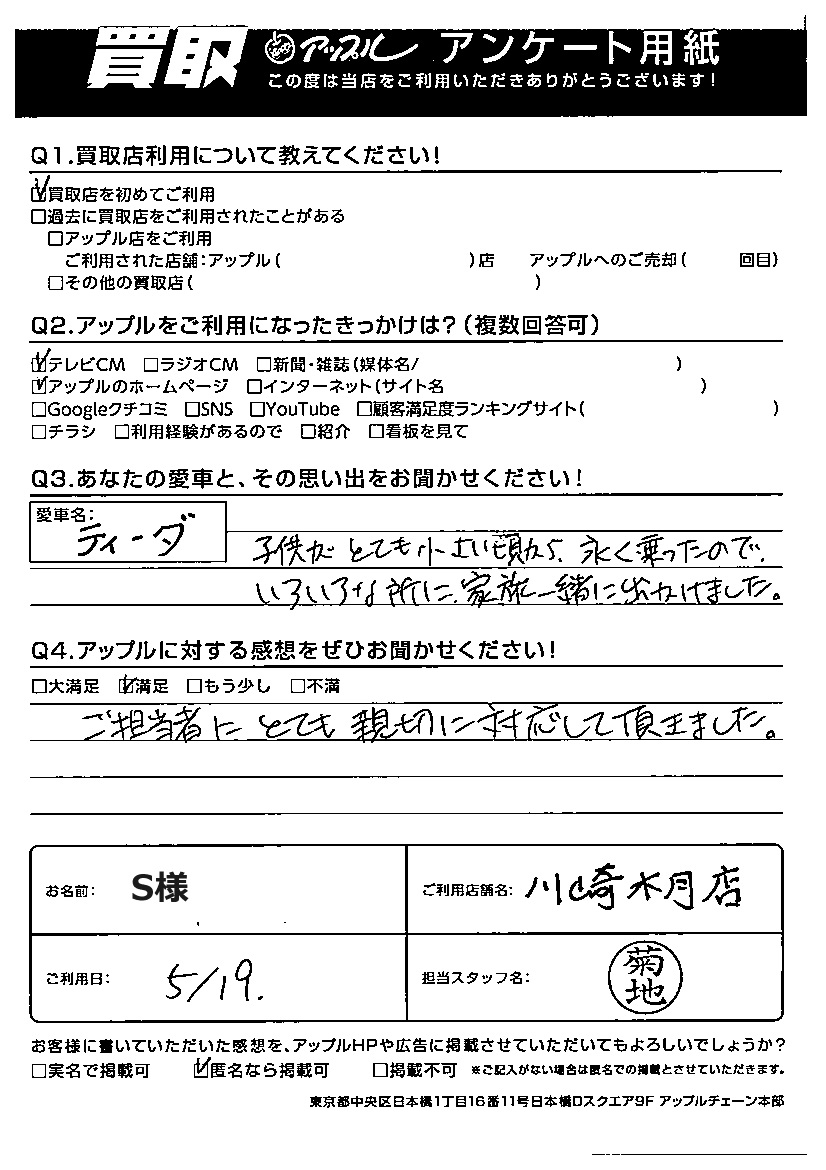 買取 アップル アンケート用紙
この度は当店をご利用いただきありがとうございます!
Q1.買取店利用について教えてください!
☑買取店を初めてご利用
□過去に買取店をご利用されたことがある
□アップル店をご利用
ご利用された店舗:アップル( )店 アップルへのご売却( 回目)
□その他の買取店( )
Q2.アップルをご利用になったきっかけは?(複数回答可)
☑テレビCM □ラジオCM □新聞・雑誌(媒体名/ )
☑アップルのホームページ □インターネット(サイト名 )
□Googleクチコミ □SNS □YouTube □顧客満足度ランキングサイト( )
□チラシ □利用経験があるので □紹介 □看板を見て
Q3.あなたの愛車と、その思い出をお聞かせください!
愛車名:
ティーダ
子供がとても小さい頃から、永く乗ったので、
いろいろな所に、家族一緒に出かけました。
Q4.アップルに対する感想をぜひお聞かせください!
□大満足 ☑満足 □もう少し □不満
ご担当者にとても親切に対応して頂きました。
お名前: S様
ご利用店舗名: 川崎木月店
ご利用日: 5/19.
担当スタッフ名: 菊地
お客様に書いていただいた感想を、アップルHPや広告に掲載させていただいてもよろしいでしょうか?
□実名で掲載可 ☑匿名なら掲載可 □掲載不可 ※ご記入がない場合は匿名での掲載とさせていただきます。
東京都中央区日本橋1丁目16番11号日本橋ロスクエア9F アップルチェーン本部